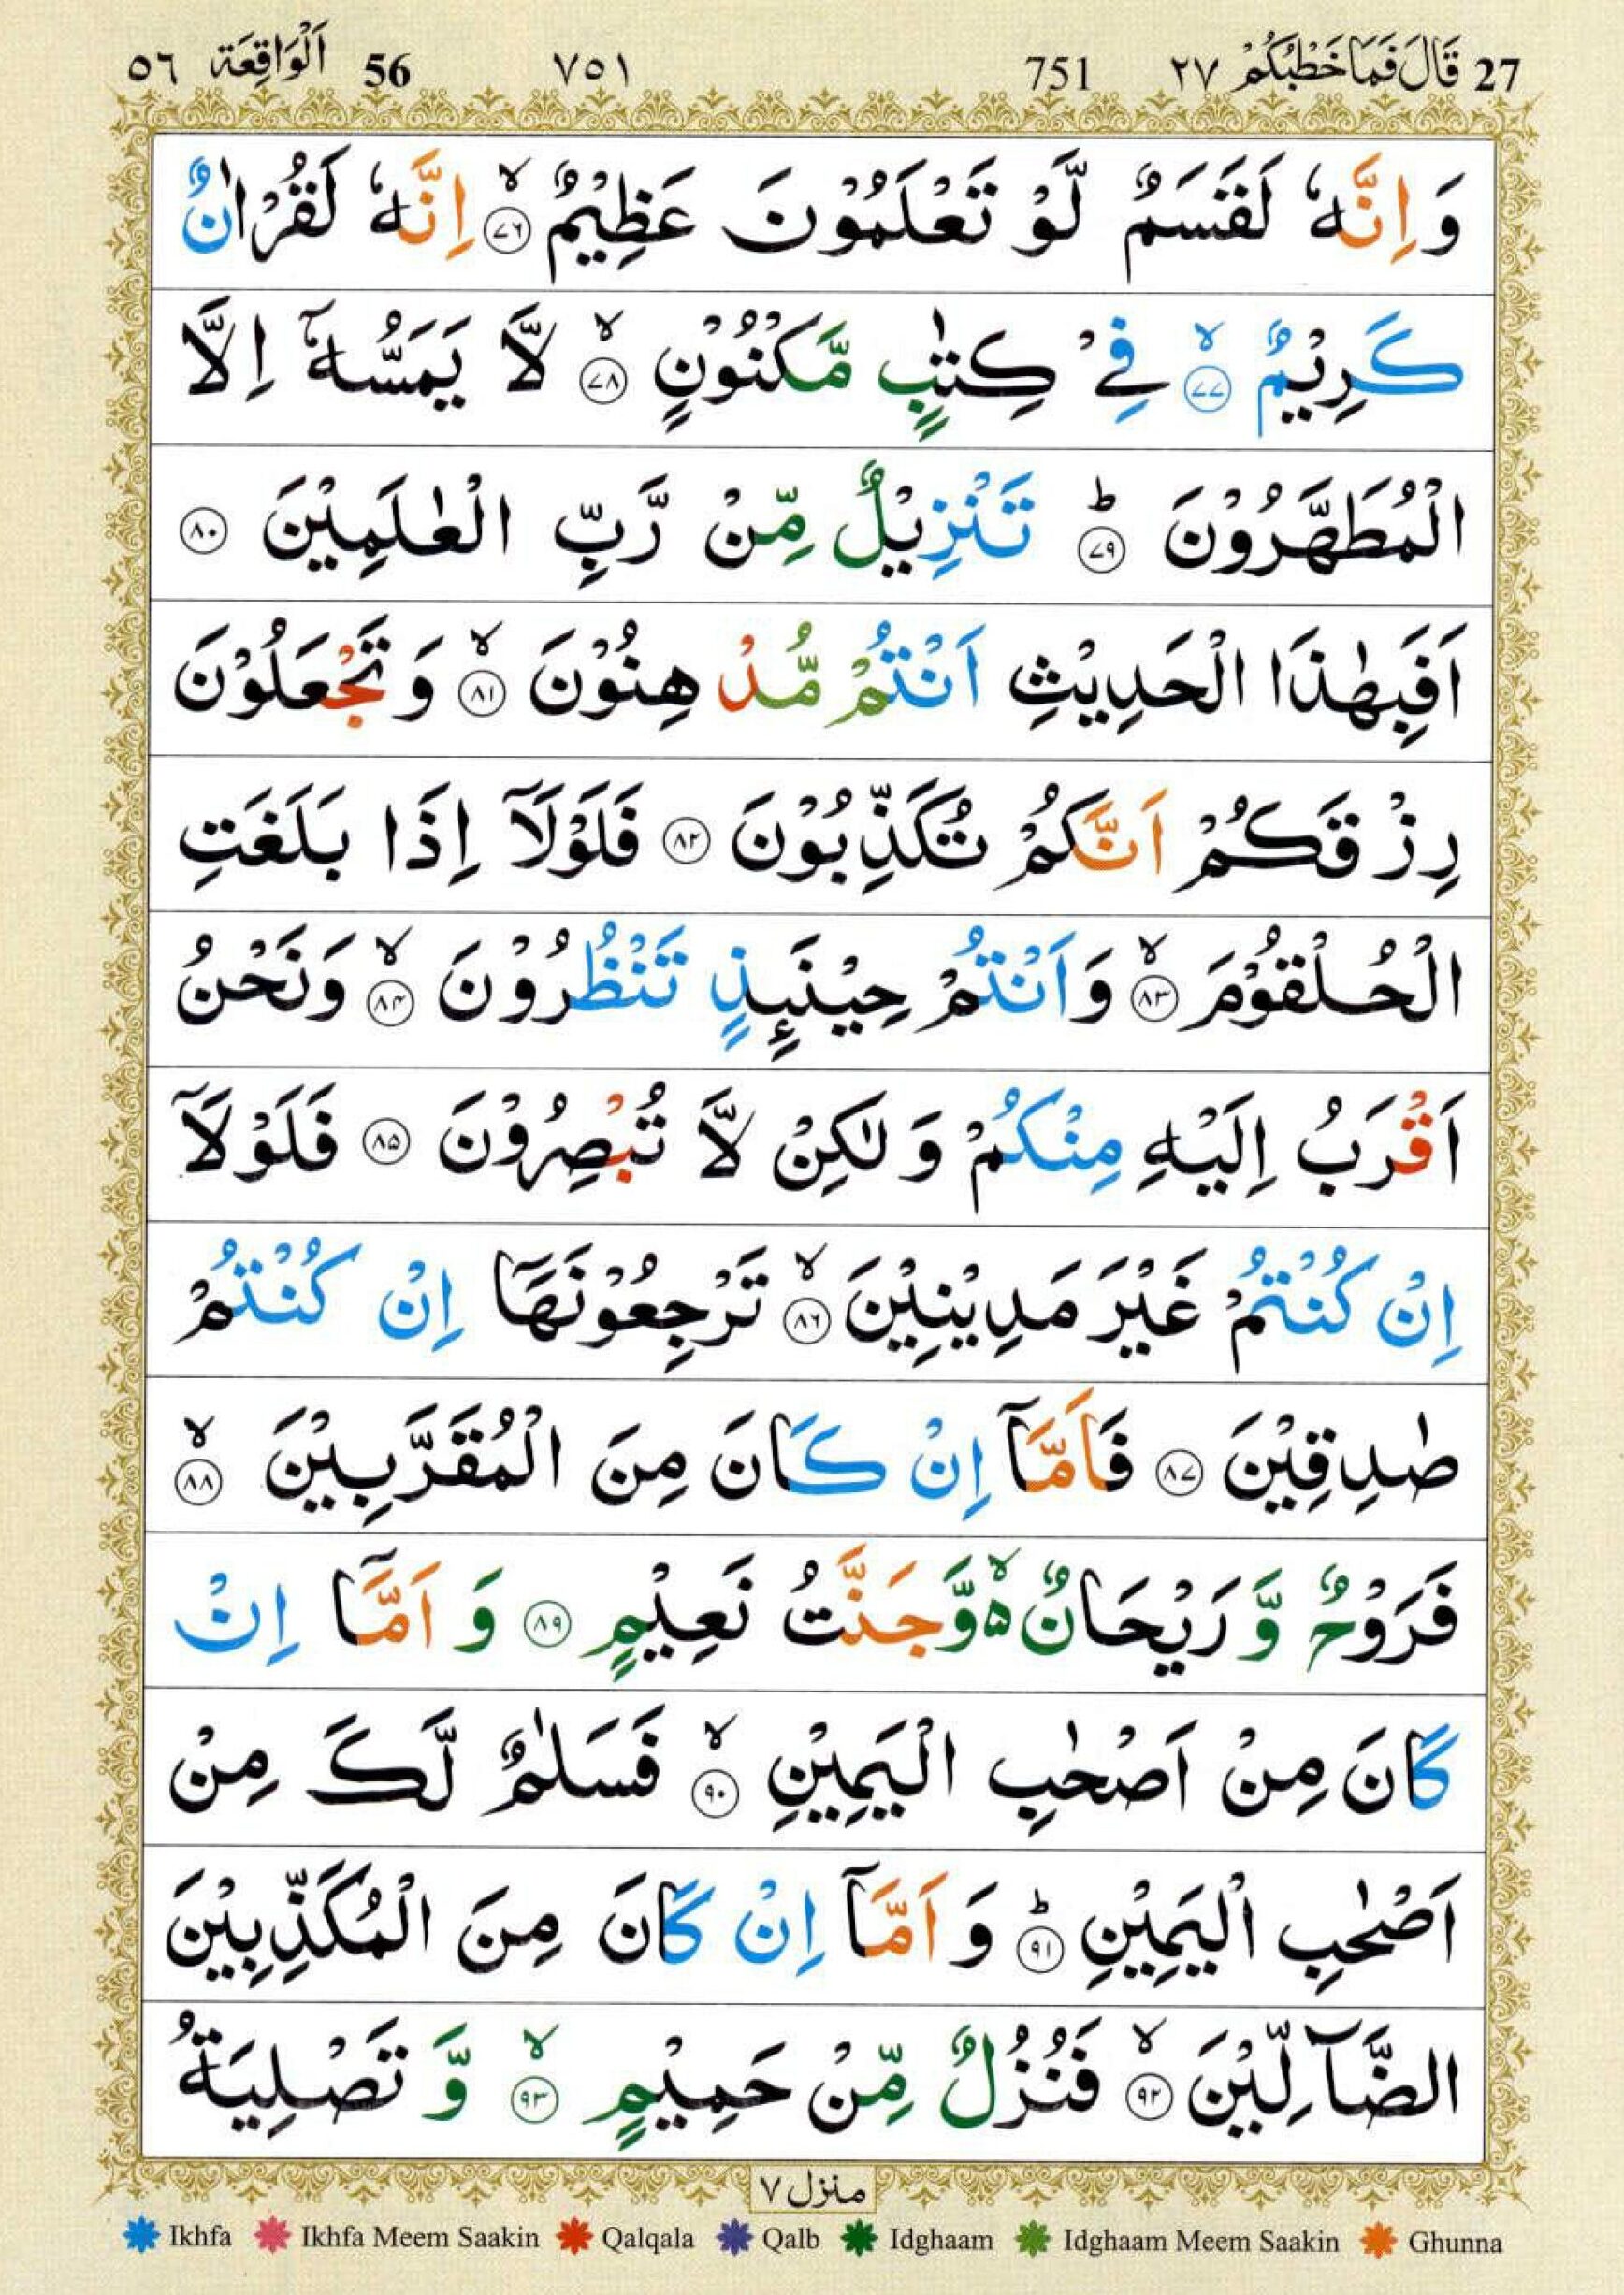 27 قَالَ فَمَا خَطْبُكُمْ ٢٧ 751 ٧٥١ 56 اَلْوَاقِعَة ٥٦
وَ اِنَّهٗ لَقَسَمٌ لَّوْ تَعْلَمُوْنَ عَظِيْمٌ ۙ‏﴿۷۶﴾ اِنَّهٗ لَقُرْاٰنٌ
كَرِيْمٌ ۙ‏﴿۷۷﴾ فِیْ كِتٰبٍ مَّكْنُوْنٍ ۙ‏﴿۷۸﴾ لَّا يَمَسُّهٗۤ اِلَّا
الْمُطَهَّرُوْنَ ؕ‏﴿۷۹﴾ تَنْزِيْلٌ مِّنْ رَّبِّ الْعٰلَمِيْنَ ﴿۸۰﴾
اَفَبِهٰذَا الْحَدِيْثِ اَنْتُمْ مُّدْهِنُوْنَ ۙ‏﴿۸۱﴾ وَ تَجْعَلُوْنَ
رِزْقَكُمْ اَنَّكُمْ تُكَذِّبُوْنَ ﴿۸۲﴾ فَلَوْلَاۤ اِذَا بَلَغَتِ
الْحُلْقُوْمَ ۙ‏﴿۸۳﴾ وَاَنْتُمْ حِيْنَىِٕذٍ تَنْظُرُوْنَ ۙ‏﴿۸۴﴾ وَنَحْنُ
اَقْرَبُ اِلَيْهِ مِنْكُمْ وَ لٰكِنْ لَّا تُبْصِرُوْنَ ﴿۸۵﴾ فَلَوْلَاۤ
اِنْ كُنْتُمْ غَيْرَ مَدِيْنِيْنَ ۙ‏﴿۸۶﴾ تَرْجِعُوْنَهَاۤ اِنْ كُنْتُمْ
صٰدِقِيْنَ ﴿۸۷﴾ فَاَمَّاۤ اِنْ كَانَ مِنَ الْمُقَرَّبِيْنَ ۙ‏﴿۸۸﴾
فَرَوْحٌ وَّ رَيْحَانٌ ۙ۬ وَّ جَنَّتُ نَعِيْمٍ ﴿۸۹﴾ وَ اَمَّاۤ اِنْ
كَانَ مِنْ اَصْحٰبِ الْيَمِيْنِ ۙ‏﴿۹۰﴾ فَسَلٰمٌ لَّكَ مِنْ
اَصْحٰبِ الْيَمِيْنِ ؕ‏﴿۹۱﴾ وَ اَمَّاۤ اِنْ كَانَ مِنَ الْمُكَذِّبِيْنَ
الضَّآلِّيْنَ ۙ‏﴿۹۲﴾ فَنُزُلٌ مِّنْ حَمِيْمٍ ۙ‏﴿۹۳﴾ وَّ تَصْلِيَةُ
منزل ٧
Ikhfa Ikhfa Meem Saakin Qalqala Qalb Idghaam Idghaam Meem Saakin Ghunna